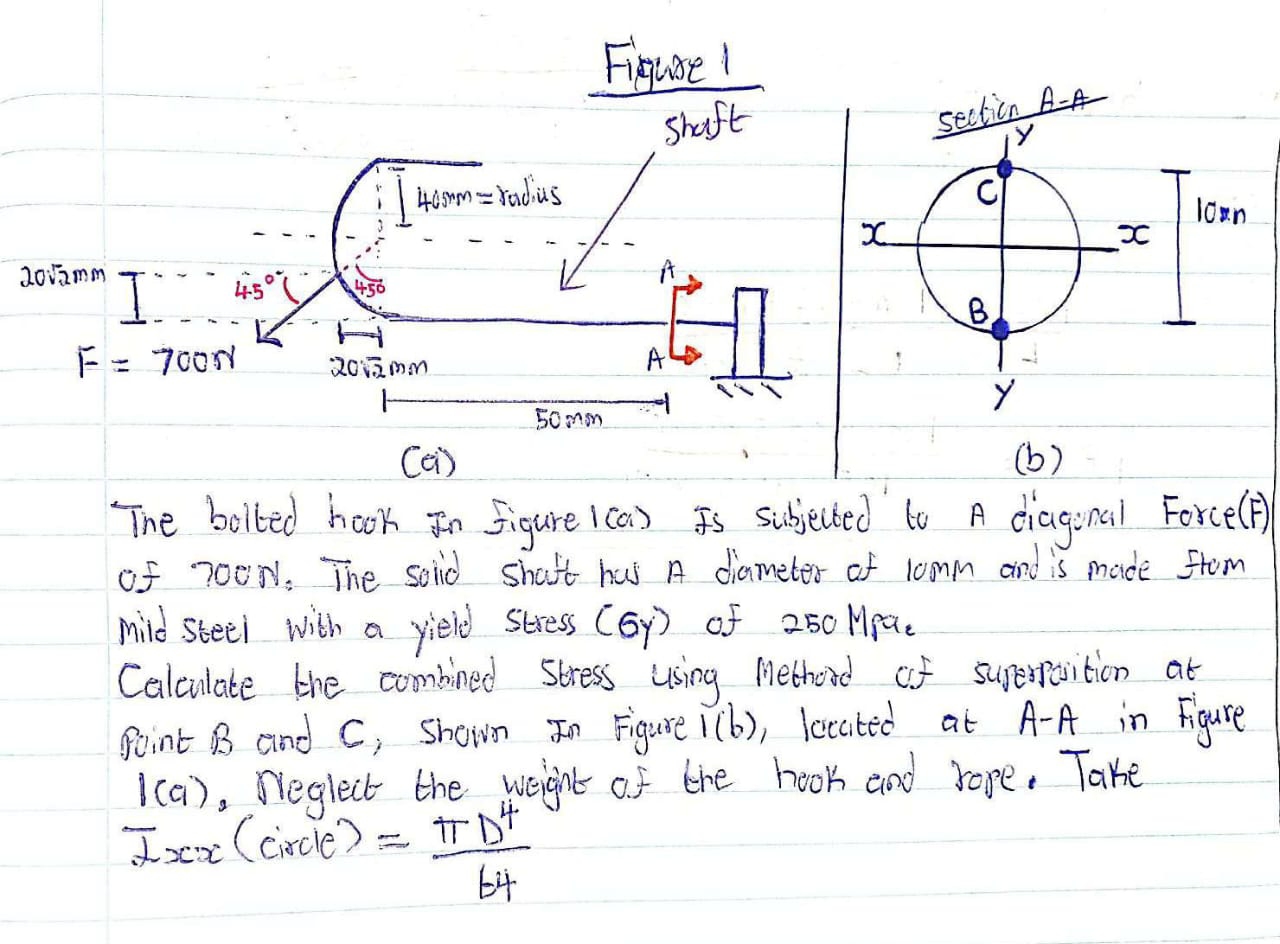 Figure 1
shaft
section A-A
Y
C
40mm = radius
10mm
x
x
20√2mm
45°
45°
A
B
A
F = 700N
20√2mm
Y
50mm
(a)
(b)
The bolted hook In figure 1(a) Is subjected to A diagonal Force(F)
of 700N. The solid shaft has A diameter of 10mm and is made from
Mild Steel with a yield stress (σy) of 250 Mpa.
Calculate the combined Stress using Methord of superposition at
Point B and C, Shown In Figure 1(b), located at A-A in Figure
1(a). Neglect the weight of the hook and rope. Take
Ixx (circle) = πD⁴
64